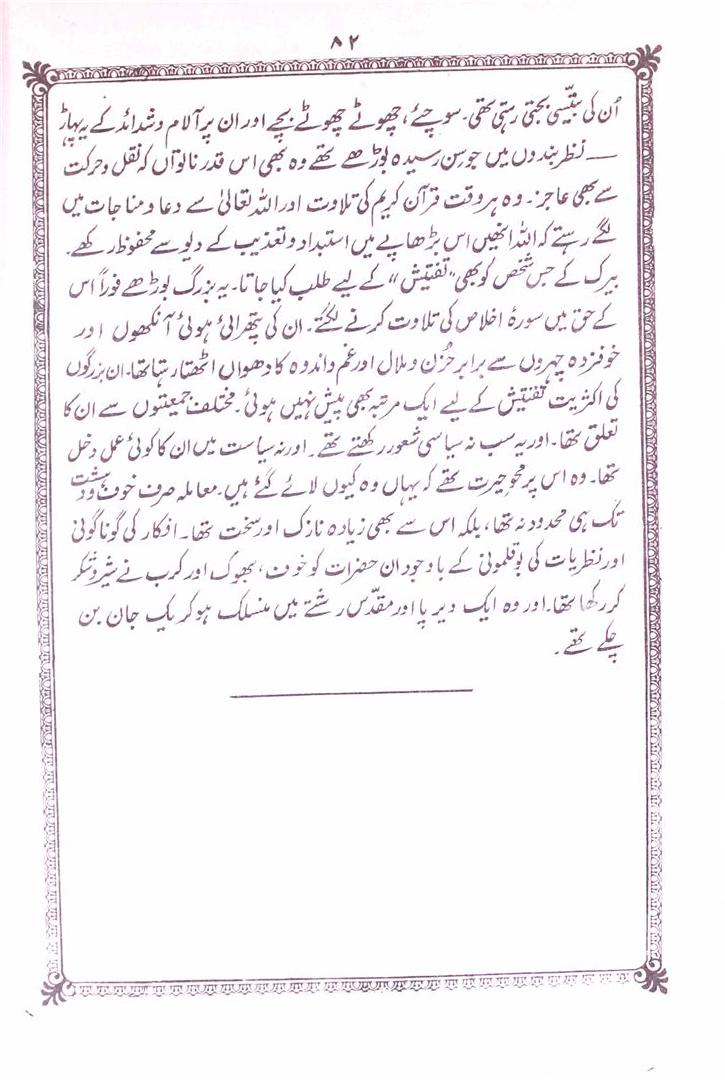 ۸۲
اُن کی بتّیسی بجتی رہتی تھی۔ سوچئے، چھوٹے چھوٹے بچے اور ان پر آلام و شدائد کے یہ پہاڑ
— نظر بندوں میں جو سِن رسیدہ بوڑھے تھے وہ بھی اس قدر ناتواں کہ نقل و حرکت
سے بھی عاجز۔ وہ ہر وقت قرآن کریم کی تلاوت اور اللہ تعالیٰ سے دعا و مناجات میں
لگے رہتے کہ اللہ انھیں اس بڑھاپے میں استبداد و تعذیب کے دیو سے محفوظ رکھے۔
بیرک کے جس شخص کو بھی "تفتیش" کے لیے طلب کیا جاتا۔ یہ بزرگ بوڑھے فوراً اس
کے حق میں سورۂ اخلاص کی تلاوت کرنے لگتے۔ ان کی پتھرائی ہوئی آنکھوں اور
خوفزدہ چہروں سے برابر حُزن و ملال اور غم و اندوہ کا دھواں اٹھتا رہتا تھا۔ ان بزرگوں
کی اکثریت تفتیش کے لیے ایک مرتبہ بھی پیش نہیں ہوئی۔ مختلف جمعیتوں سے ان کا
تعلق تھا۔ اور یہ سب نہ سیاسی شعور رکھتے تھے۔ اور نہ سیاست میں ان کا کوئی عمل دخل
تھا۔ وہ اس پر محوِ حیرت تھے کہ یہاں وہ کیوں لائے گئے ہیں۔ معاملہ صرف خوف و دہشت
تک ہی محدود نہ تھا، بلکہ اس سے بھی زیادہ نازک اور سخت تھا۔ افکار کی گوناگونی
اور نظریات کی بوقلمونی کے باوجود ان حضرات کو خوف، بھوک اور کرب نے شیر و شکر
کر رکھا تھا۔ اور وہ ایک دیرپا اور مقدّس رشتے میں منسلک ہو کر یک جان بن
چکے تھے۔